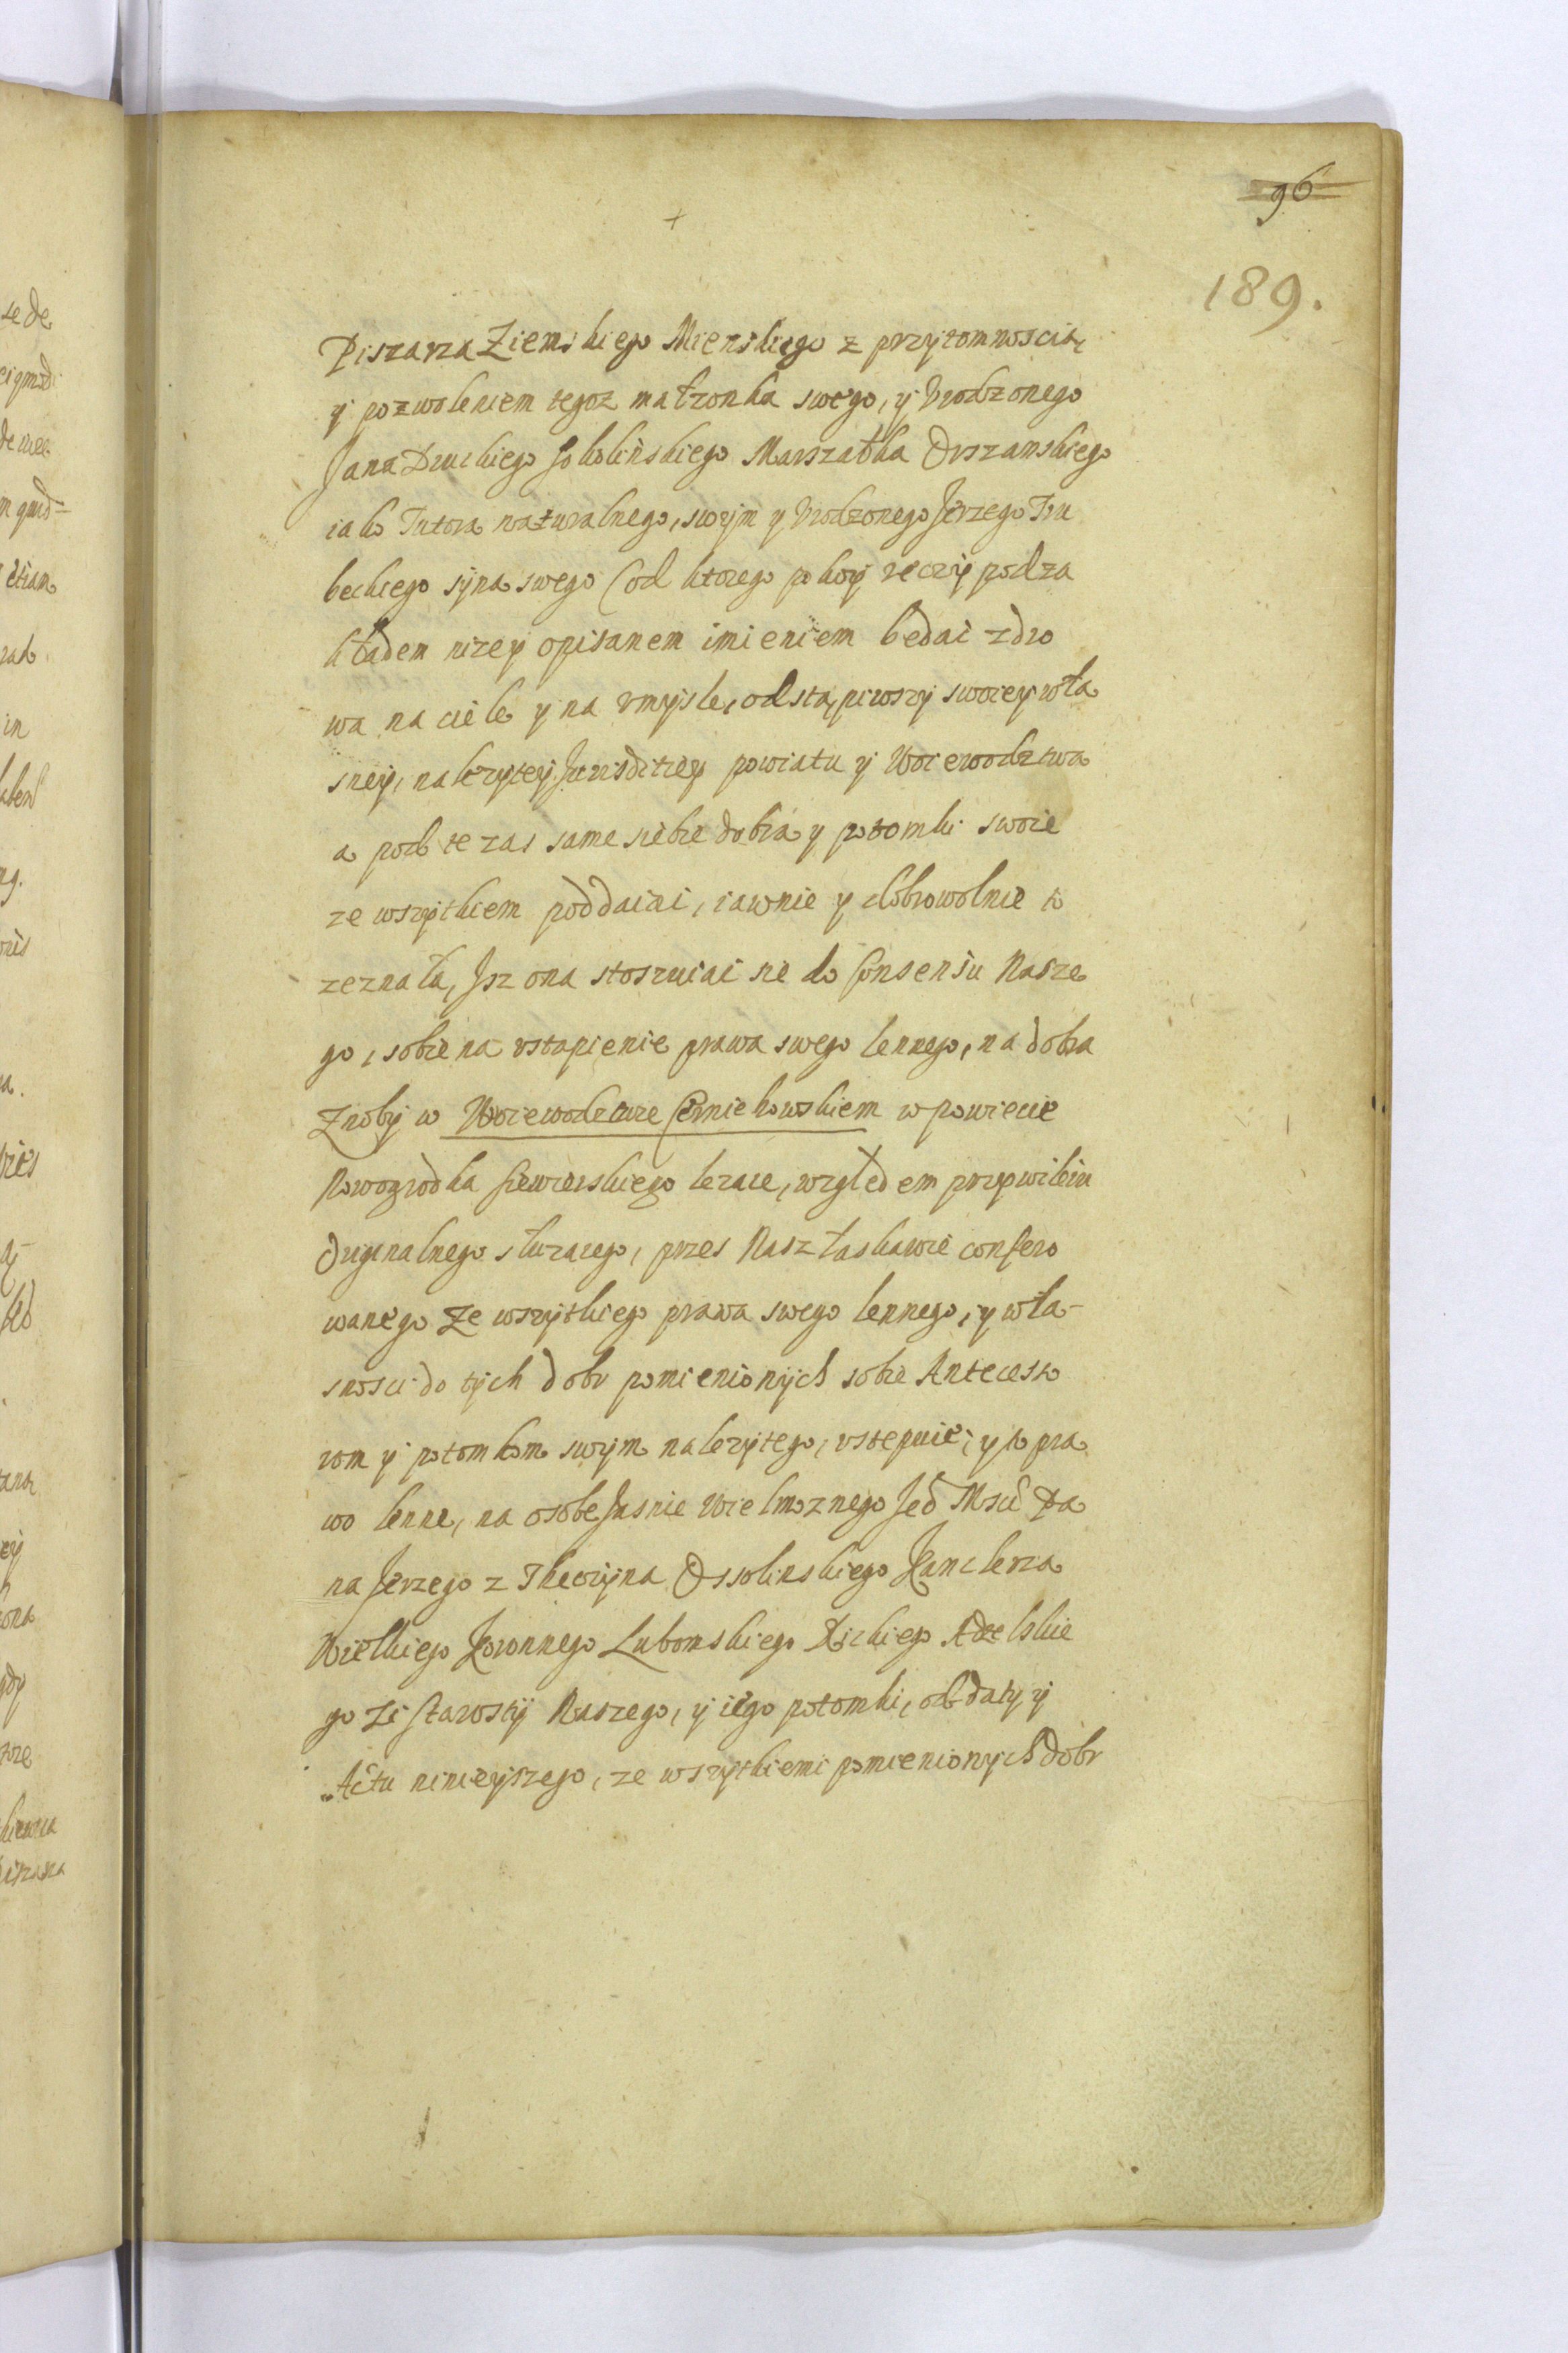 96
189.
Piszarza Ziemskiego Mienskiego z przytomnoscią
y pozwoleniem tegoz małzonka swego, y Vrodzonego
Jana Druckiego Sokolińskiego Marszałka Orszanskiego
iako Tutora naturalnego, swym y Vrodzonego Jerzego Tru
beckiego syna swego (od ktorego pokoy reczy podza
kładem nizey opisanem imieniem bedac zdro
wa na ciele y na vmysle, odstąpiwszy swoiey wła
sney, nalezytey Jurisditiey powiatu y Woiewodztwa
a pod te zas same siebie dobra y potomki swoie
ze wszytkiem poddaiac, iawnie y dobrowolnie
zeznała, Jsz ona stosuiac sie do Consensu Nasze
go, sobie na vstapienie prawa swego lennego, na dobra
Znoby w Woiewodztwie Czerniehowskiem w powiecie
Nowogrodka Siewierskiego lezace, wzgledem przywileiu
Originalnego sluzacego, przes Nasz łaskawie confero
wanego Ze wszytkiego prawa swego lennego, y wła-
snosci do tych dobr pomienionych sobie Antecesso
rom y potomkom swym nalezytego, vstepuie, y to pra
wo lenne, na osobe Jasnie Wielmoznego Jeo Msci Pa
na Jerzego z Thęczyna Ossolinskiego Kanclerza
Wielkiego Koronnego Lubomskiego Rickiego Adzelskie
go Zc Starosty Naszego, y iego potomki, oddaty y
Actu ninieyszego, ze wszytkiemi pomienionych dobr